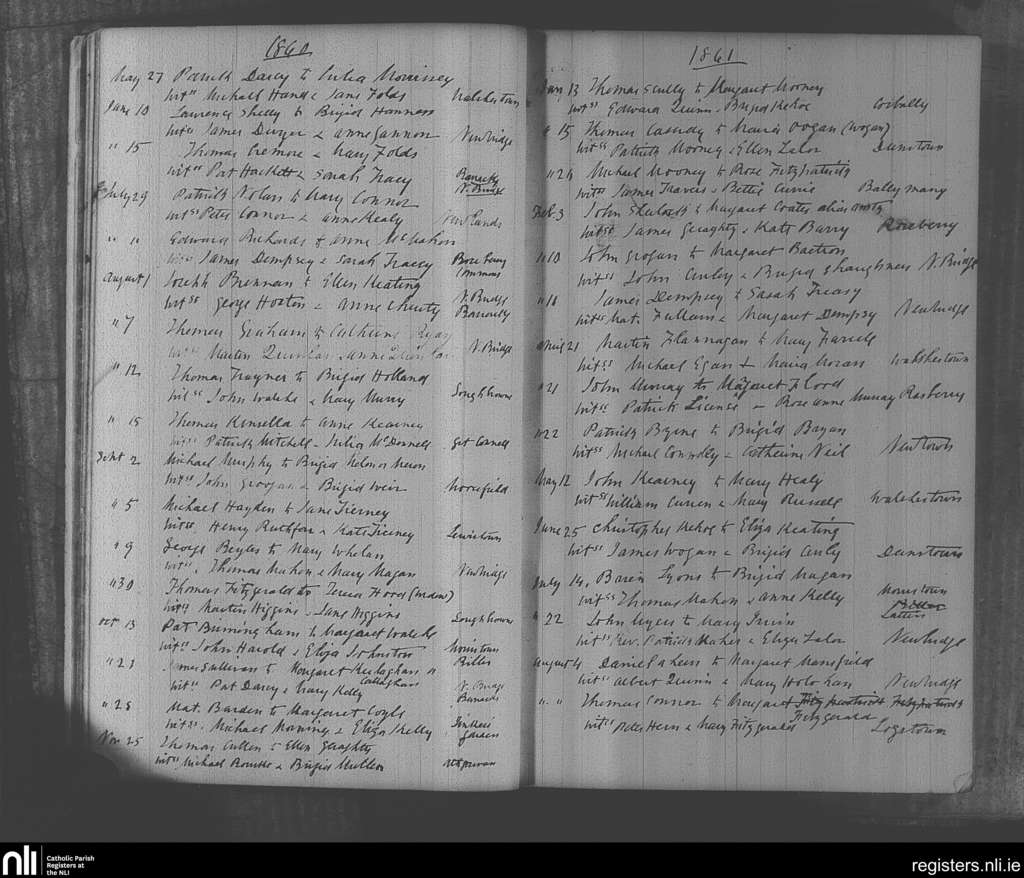 1860
May 27 Patrick Darcy to Julia Morrissey
witss Michael Hand & Jane Folds Walshestown
June 10 Lawrence Shelly to Brigid
witss James Dwyer & Anne Gannon Newbridge
" 15 Thomas Cremore & Mary Folds
witss Pat Hackett & Sarah Tracy Barracks N. Bridge
July 29 Patrick Nolan to Mary Connor
witss Peter Connor & Anne Kealy Newlands
" " Edward Richards & Anne McMahon
witss James Dempsey & Sarah Tracey Rose berry Commons
August 1 Joseph Brennan to Ellen Keating
witss George Horton & Anne N. Bridge Barracks
" 7 Thomas Graham to Catherine Ryan
witss Martin N. Bridge
" 12 Thomas Traynor to Brigid Holland
witss John Walshe & Mary Murry Loughbrowne
" 15 Thomas Kinsella to Anne Kearney
witss Patrick Mitchell & Julia McDonnell Get Connell
Sept 2 Michael Murphy to Brigid
witss John Groogan & Brigid Weir Moorefield
" 5 Michael Hayden to Jane Tierney
witss Henry & Kate Tierney Lewistown
" 9 George to Mary Whelan
witss Thomas Mahon & Mary Magan Newbridge
" 30 Thomas Fitzgerald to Teresa Hood
witss Martin Higgins & Jane Higgins Loughbrowne
Oct 13 Pat Birmingham to Margaret Walshe
witss John Harold & Eliza Johnston Morristown Biller
" 21 James Sullivan to Margaret
Callaghan
witss Pat Darcy & Mary Kelly N. Bridge Barracks
" 28 Mat. Barden to Margaret Coyle
witss Michael & Eliza Kelly
Nov 25 Thomas Cullen to Ellen Geraghty
witss Michael Rourke & Brigid Mullen
1861
Jan 13 Thomas Scully to Margaret Mooney
witss Edward Quinn & Brigid Kehoe Corbally
" 15 Thomas Cassidy to Maria Oogan (Wogan)
witss Patrick Mooney & Ellen Lalor Dunstown
" 26 Michael Mooney to Rose Fitzpatrick
witss James Travers & Bettie Currie Ballymany
Feb 3 John to Margaret Coates alias
witss James Geraghty & Kate Barry Roseberry
" 10 John Grogan to Margaret
witss John Curly & Brigid Shaughness N. Bridge
" 10 James Dempsey to Sarah Treasy
witss Mat. Fullam & Margaret Dempsy Newbridge
April 21 Martin Flannagan to Mary Farrell
witss Michael Egan & Maria Moran Walshestown
" 21 John Murray to Margaret Flood
witss Patrick License & Rose Anne Murray Rosberry
" 22 Patrick Byrne to Brigid Bagan
witss Michael Connolly & Catherine Neil Newtown
May 12 John Kearney to Mary Healy
witss William Curren & Mary Russell Walshestown
June 25 Christopher Kehoe to Eliza Keating
witss James Wogan & Brigid Curly Dunstown
July 14 Lyons to Brigid Magan
witss Thomas Mahon & Anne Kelly Morristown Biller Lattin
" 22 John Myers to Mary Irvin
witss Rev. Patrick Maher & Eliza Lalor Newbridge
August 4 Daniel Akers to Margaret Mansfield
witss Albert Quinn & Mary Holohan Newbridge
" " Thomas Connor to Margaret Fitzpatrick Fitzpatrick
Fitzgerald
witss Peter Hern & Mary Fitzgerald Logstown
nli
Catholic Parish
Registers at
the NLI
registers.nli.ie